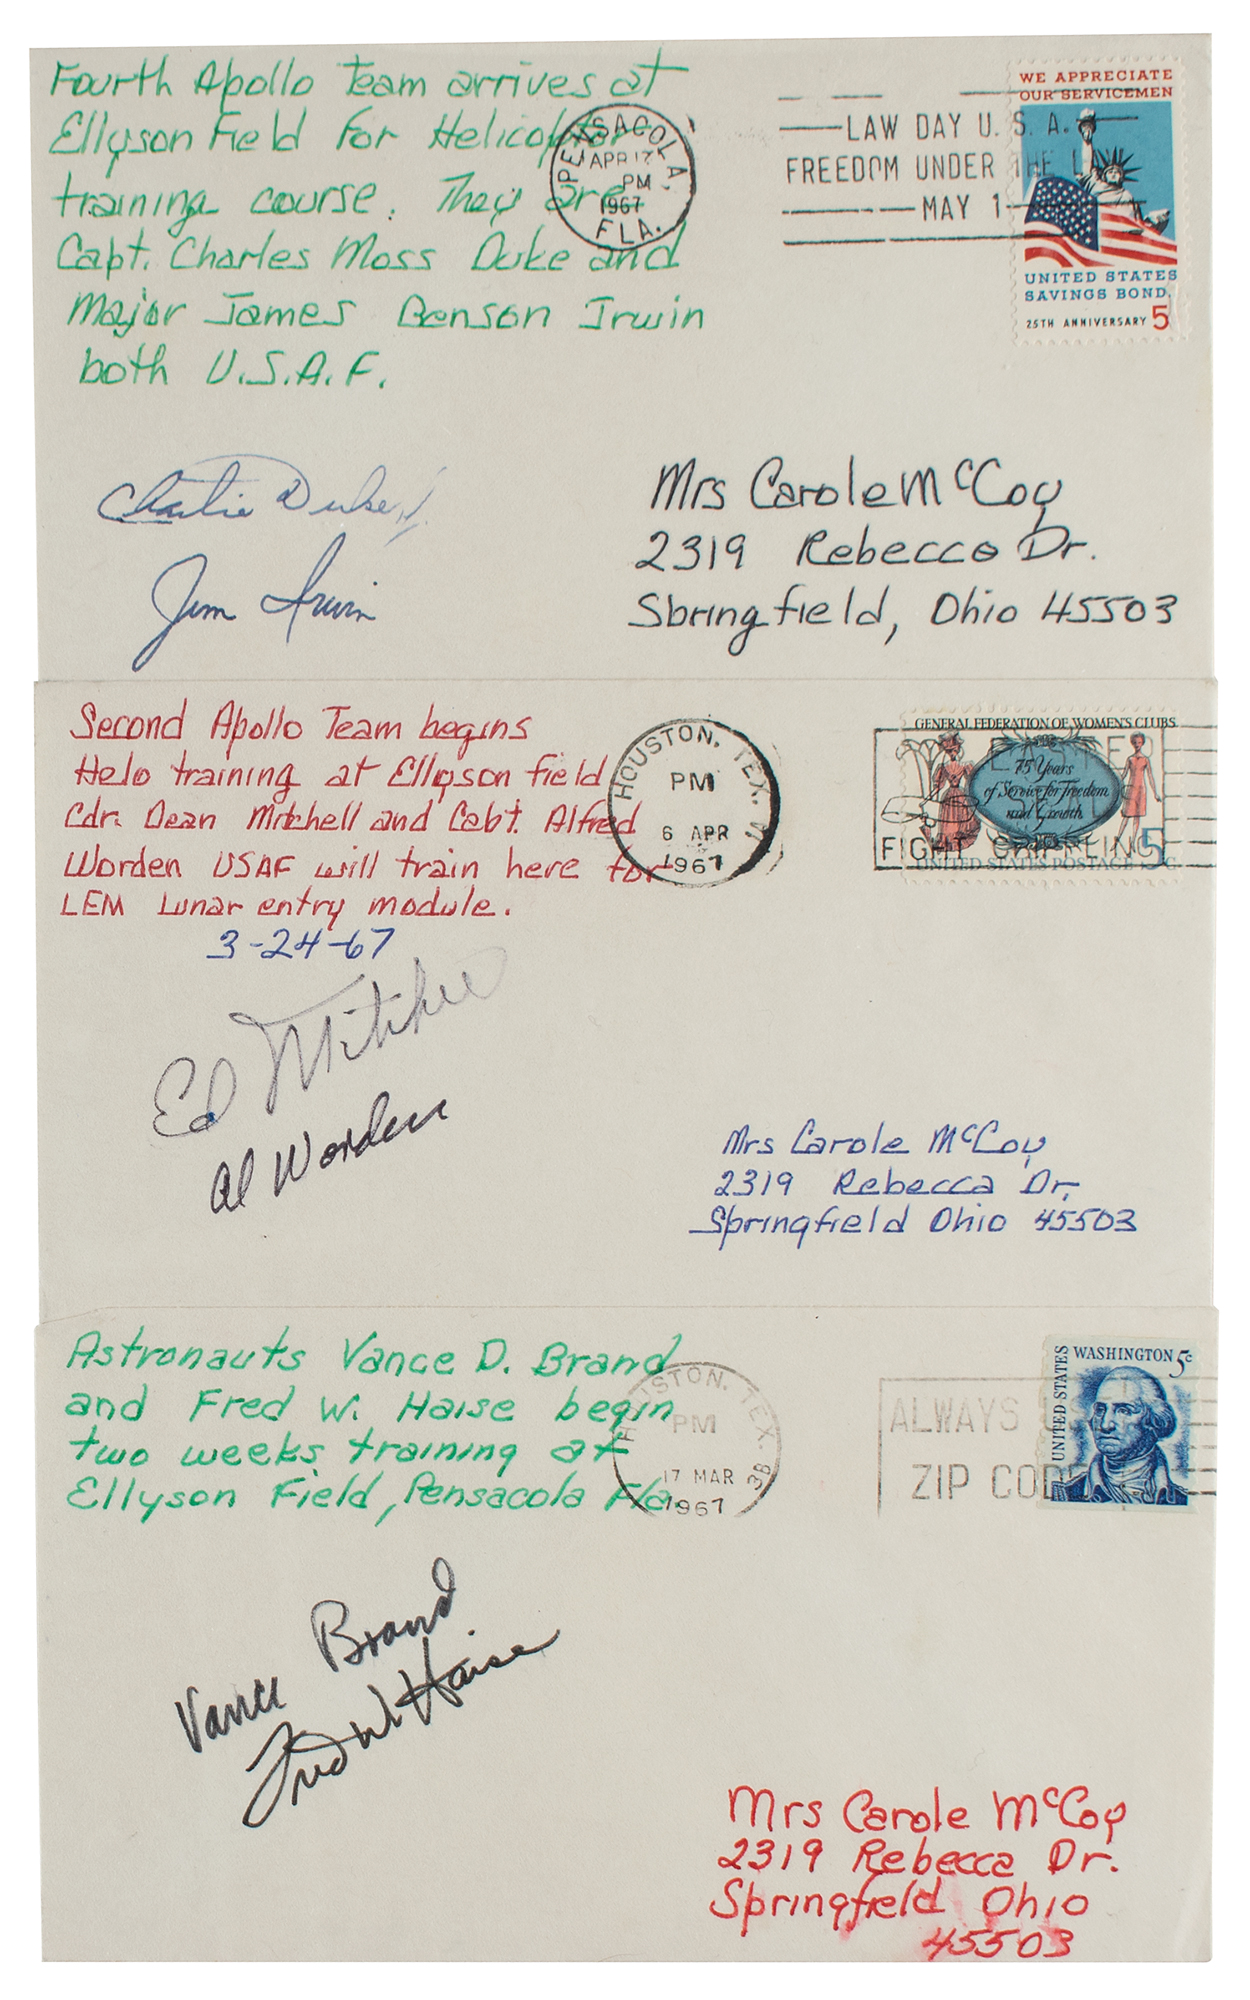 Fourth Apollo Team arrives at
Ellyson Field for Helicoptor
training course. They are
Capt. Charles Moss Duke and
Major James Benson Irwin
both U.S.A.F.
PENSACOLA,
APR 17
PM
1967
FLA.
LAW DAY U.S.A.
FREEDOM UNDER THE LAW
MAY 1
WE APPRECIATE
OUR SERVICEMEN
UNITED STATES
SAVINGS BOND
25TH ANNIVERSARY 5
Charlie Duke
Jim Irwin
Mrs Carole McCoy
2319 Rebecca Dr.
Springfield, Ohio 45503
Second Apollo Team begins
Helo training at Ellyson field
Cdr. Dean Mitchell and Capt. Alfred
Worden USAF will train here for
LEM Lunar entry module.
3-24-67
HOUSTON, TEX.
PM
6 APR
1967
GENERAL FEDERATION OF WOMEN'S CLUBS
75 Years
of Service for Freedom
and Growth
UNITED STATES POSTAGE 5 C
FIGHT CRIPPLING
Ed Mitchell
Al Worden
Mrs Carole McCoy
2319 Rebecca Dr.
Springfield Ohio 45503
Astronauts Vance D. Brand
and Fred W. Haise begin
two weeks training at
Ellyson Field, Pensacola Fla.
HOUSTON, TEX. 3B
PM
17 MAR
1967
ALWAYS
ZIP CODE
UNITED STATES
WASHINGTON 5c
Vance Brand
Fred W Haise
Mrs Carole McCoy
2319 Rebecca Dr.
Springfield Ohio
45503